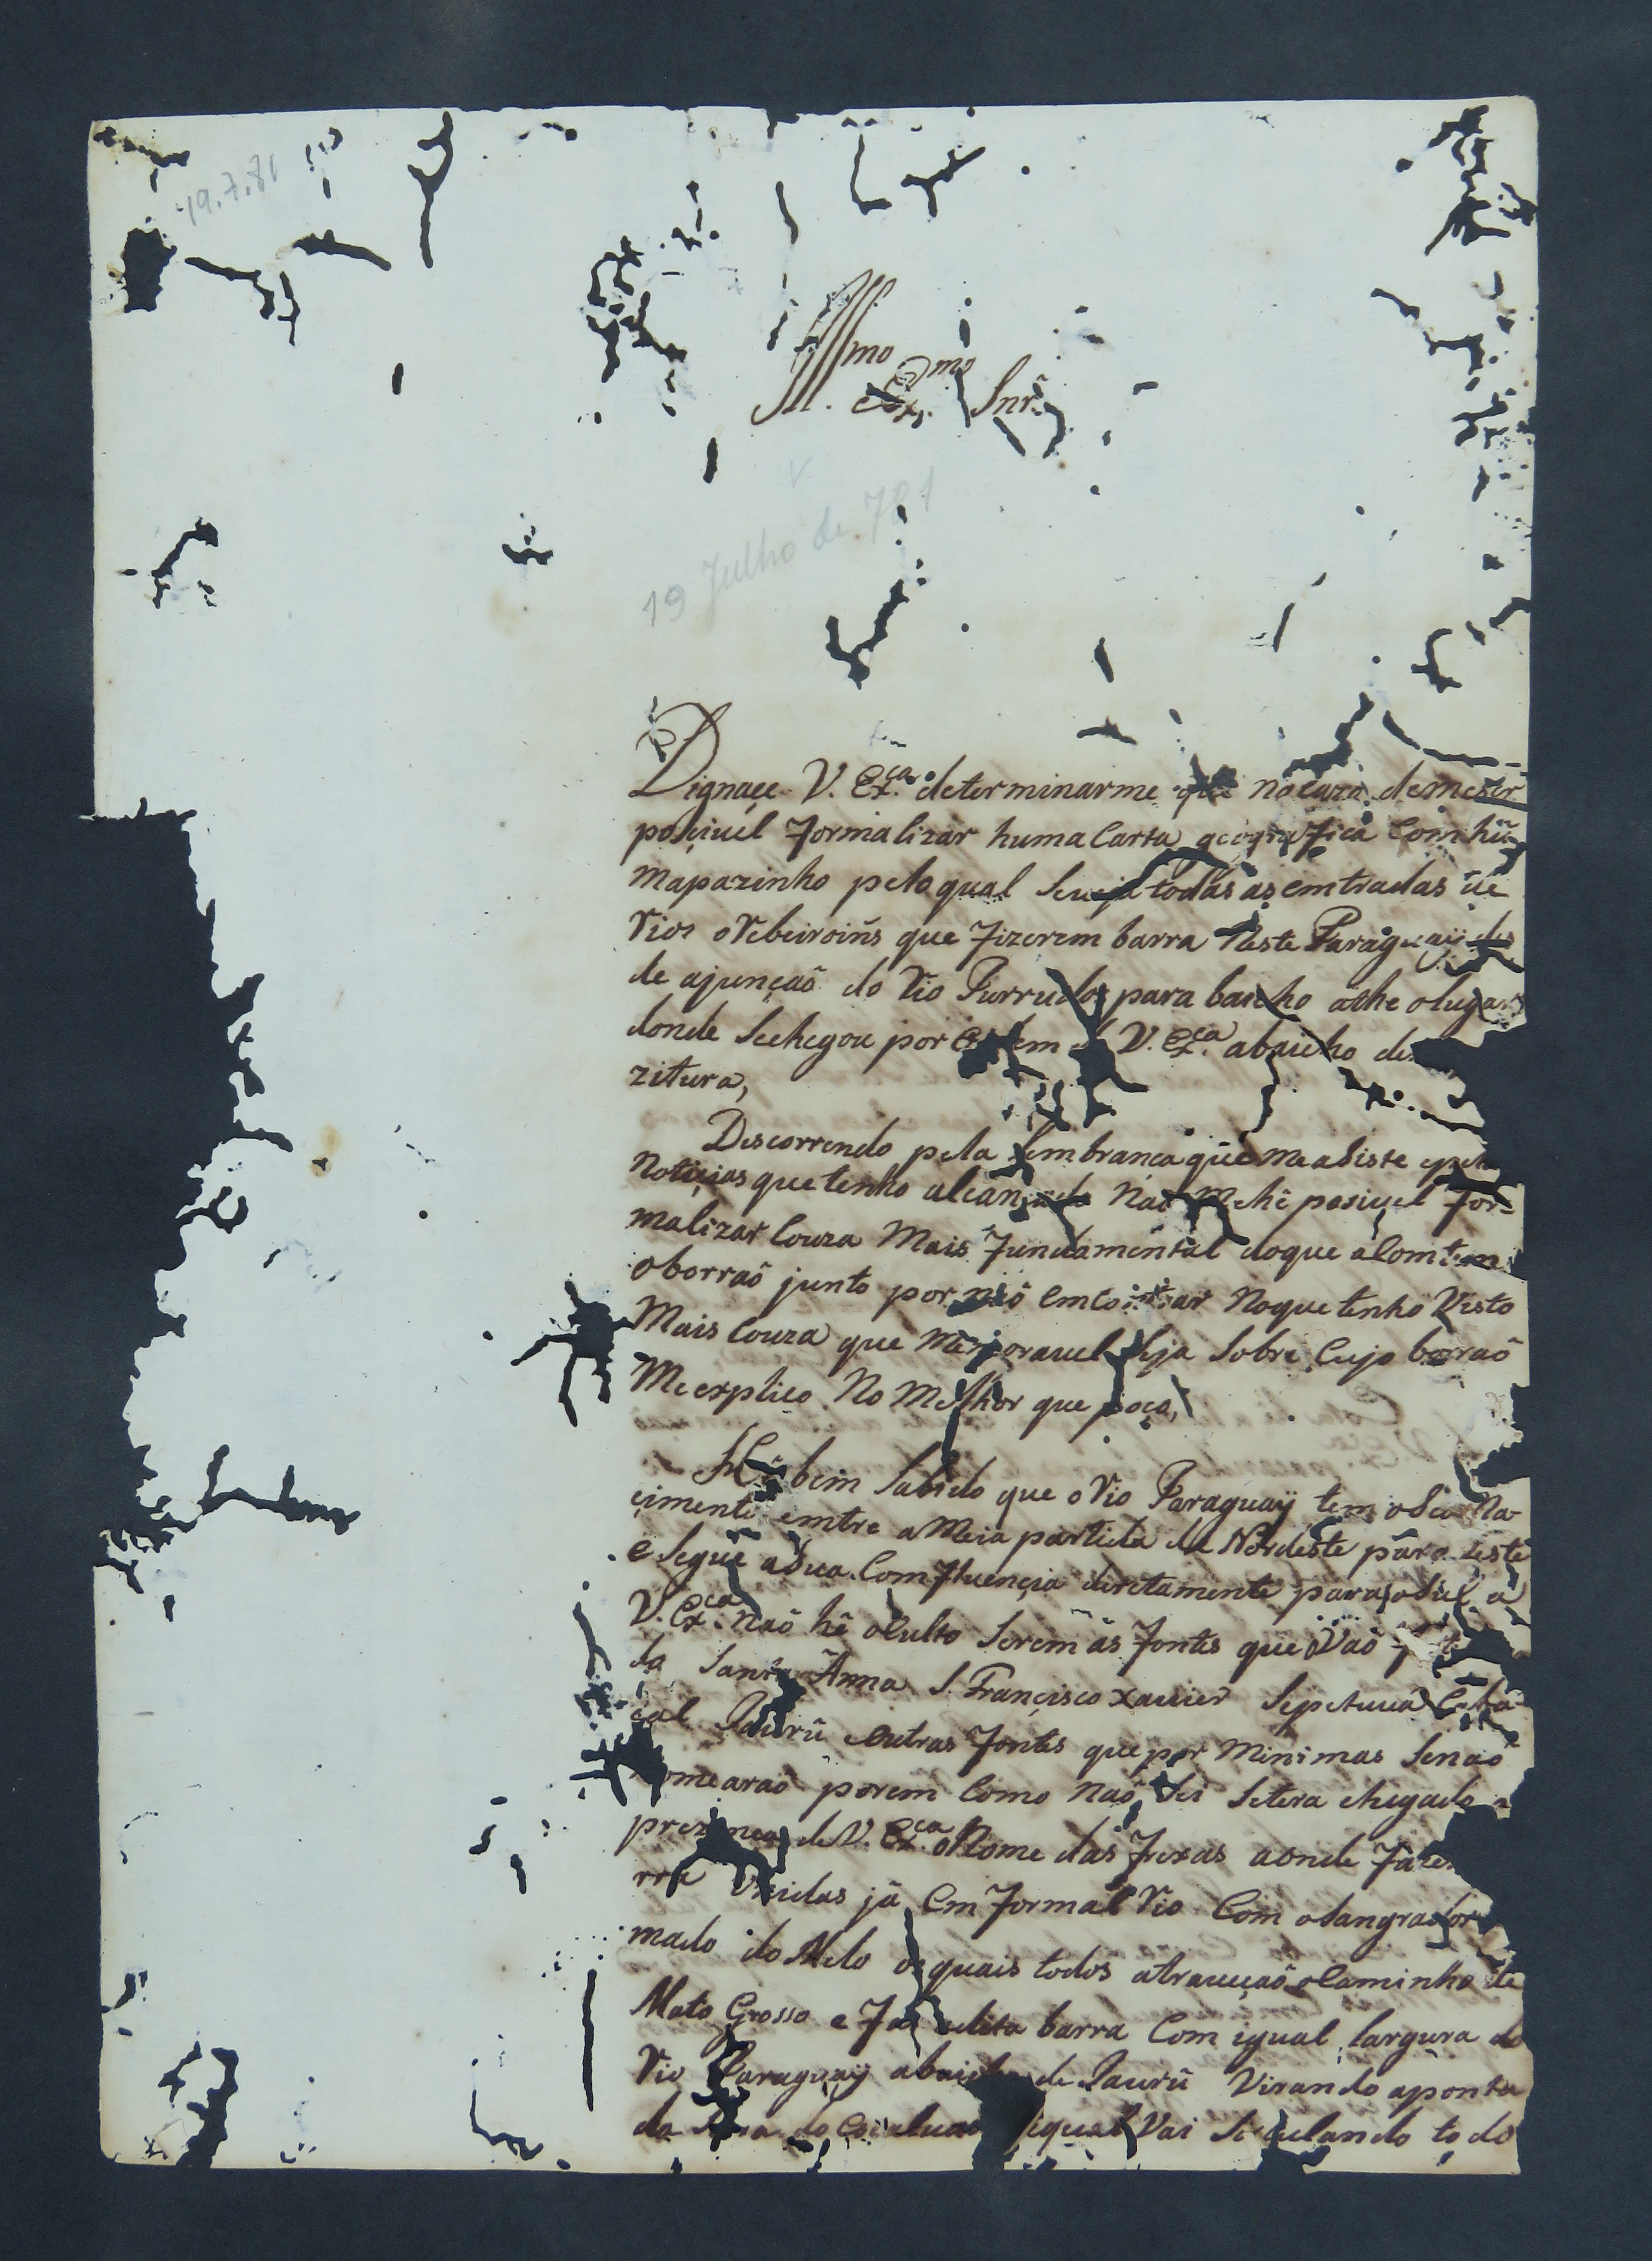 19.7.81
Illmo Exmo Snr.
19 Julho de 781
Dignaçe V. Exca. determinarme que no cazo demeser
poçiuel formalizar huma Carta geografica Com hũ
Mapazinho pelo qual seueja todas as emtradas de
Rios o Rebeiroiñs que fizerem barra Neste Paraguaÿ des
de ajunçaõ do Rio Purrudos para baicho athe olugar
donde Sechegou por ordem d V. Exca. abaicho de
zitura,
Descorrendo pela Lembranca que me asiste epela
Notiçias que tenho alcançado Naõ Me hê posiuel for=
malizar Couza Mais fundamental doque aComtem
oborraõ junto por naõ emContrar Noque tenho Visto
Mais Couza que Memorauel Seja Sobre Cujo borraõ
Me explico No Melhor que poça,
Hê bem Sabido que o Rio Paraguaÿ tem oSeo Na-
cimento emtre a Meia partida de Nordeste para Leste
e Segue aSua ComfLuençia diretamente para oSul a
V. Exca. Naõ hê oculto Serem as fontes que Vaõ
da Santa Anna S. Françisco Xauier Sipetuua Caba-
çal Jaurû eoutras fontes que por Minimas Senaõ
Nomearaõ porem Como Naõ Sei Setera chegado a
prezença de V. Exca. oNome das frexas aonde fazem
rra vnidas jâ Em formal Rio Com oSangrador
mado do Melo os quais todos atraueçaõ oCaminho de
Mato Grosso e faz adita barra Com igual largura do
Rio Paraguaÿ abaicho de Jaurû Virando aponta
da do Escaluado equal Vai Seculando todo